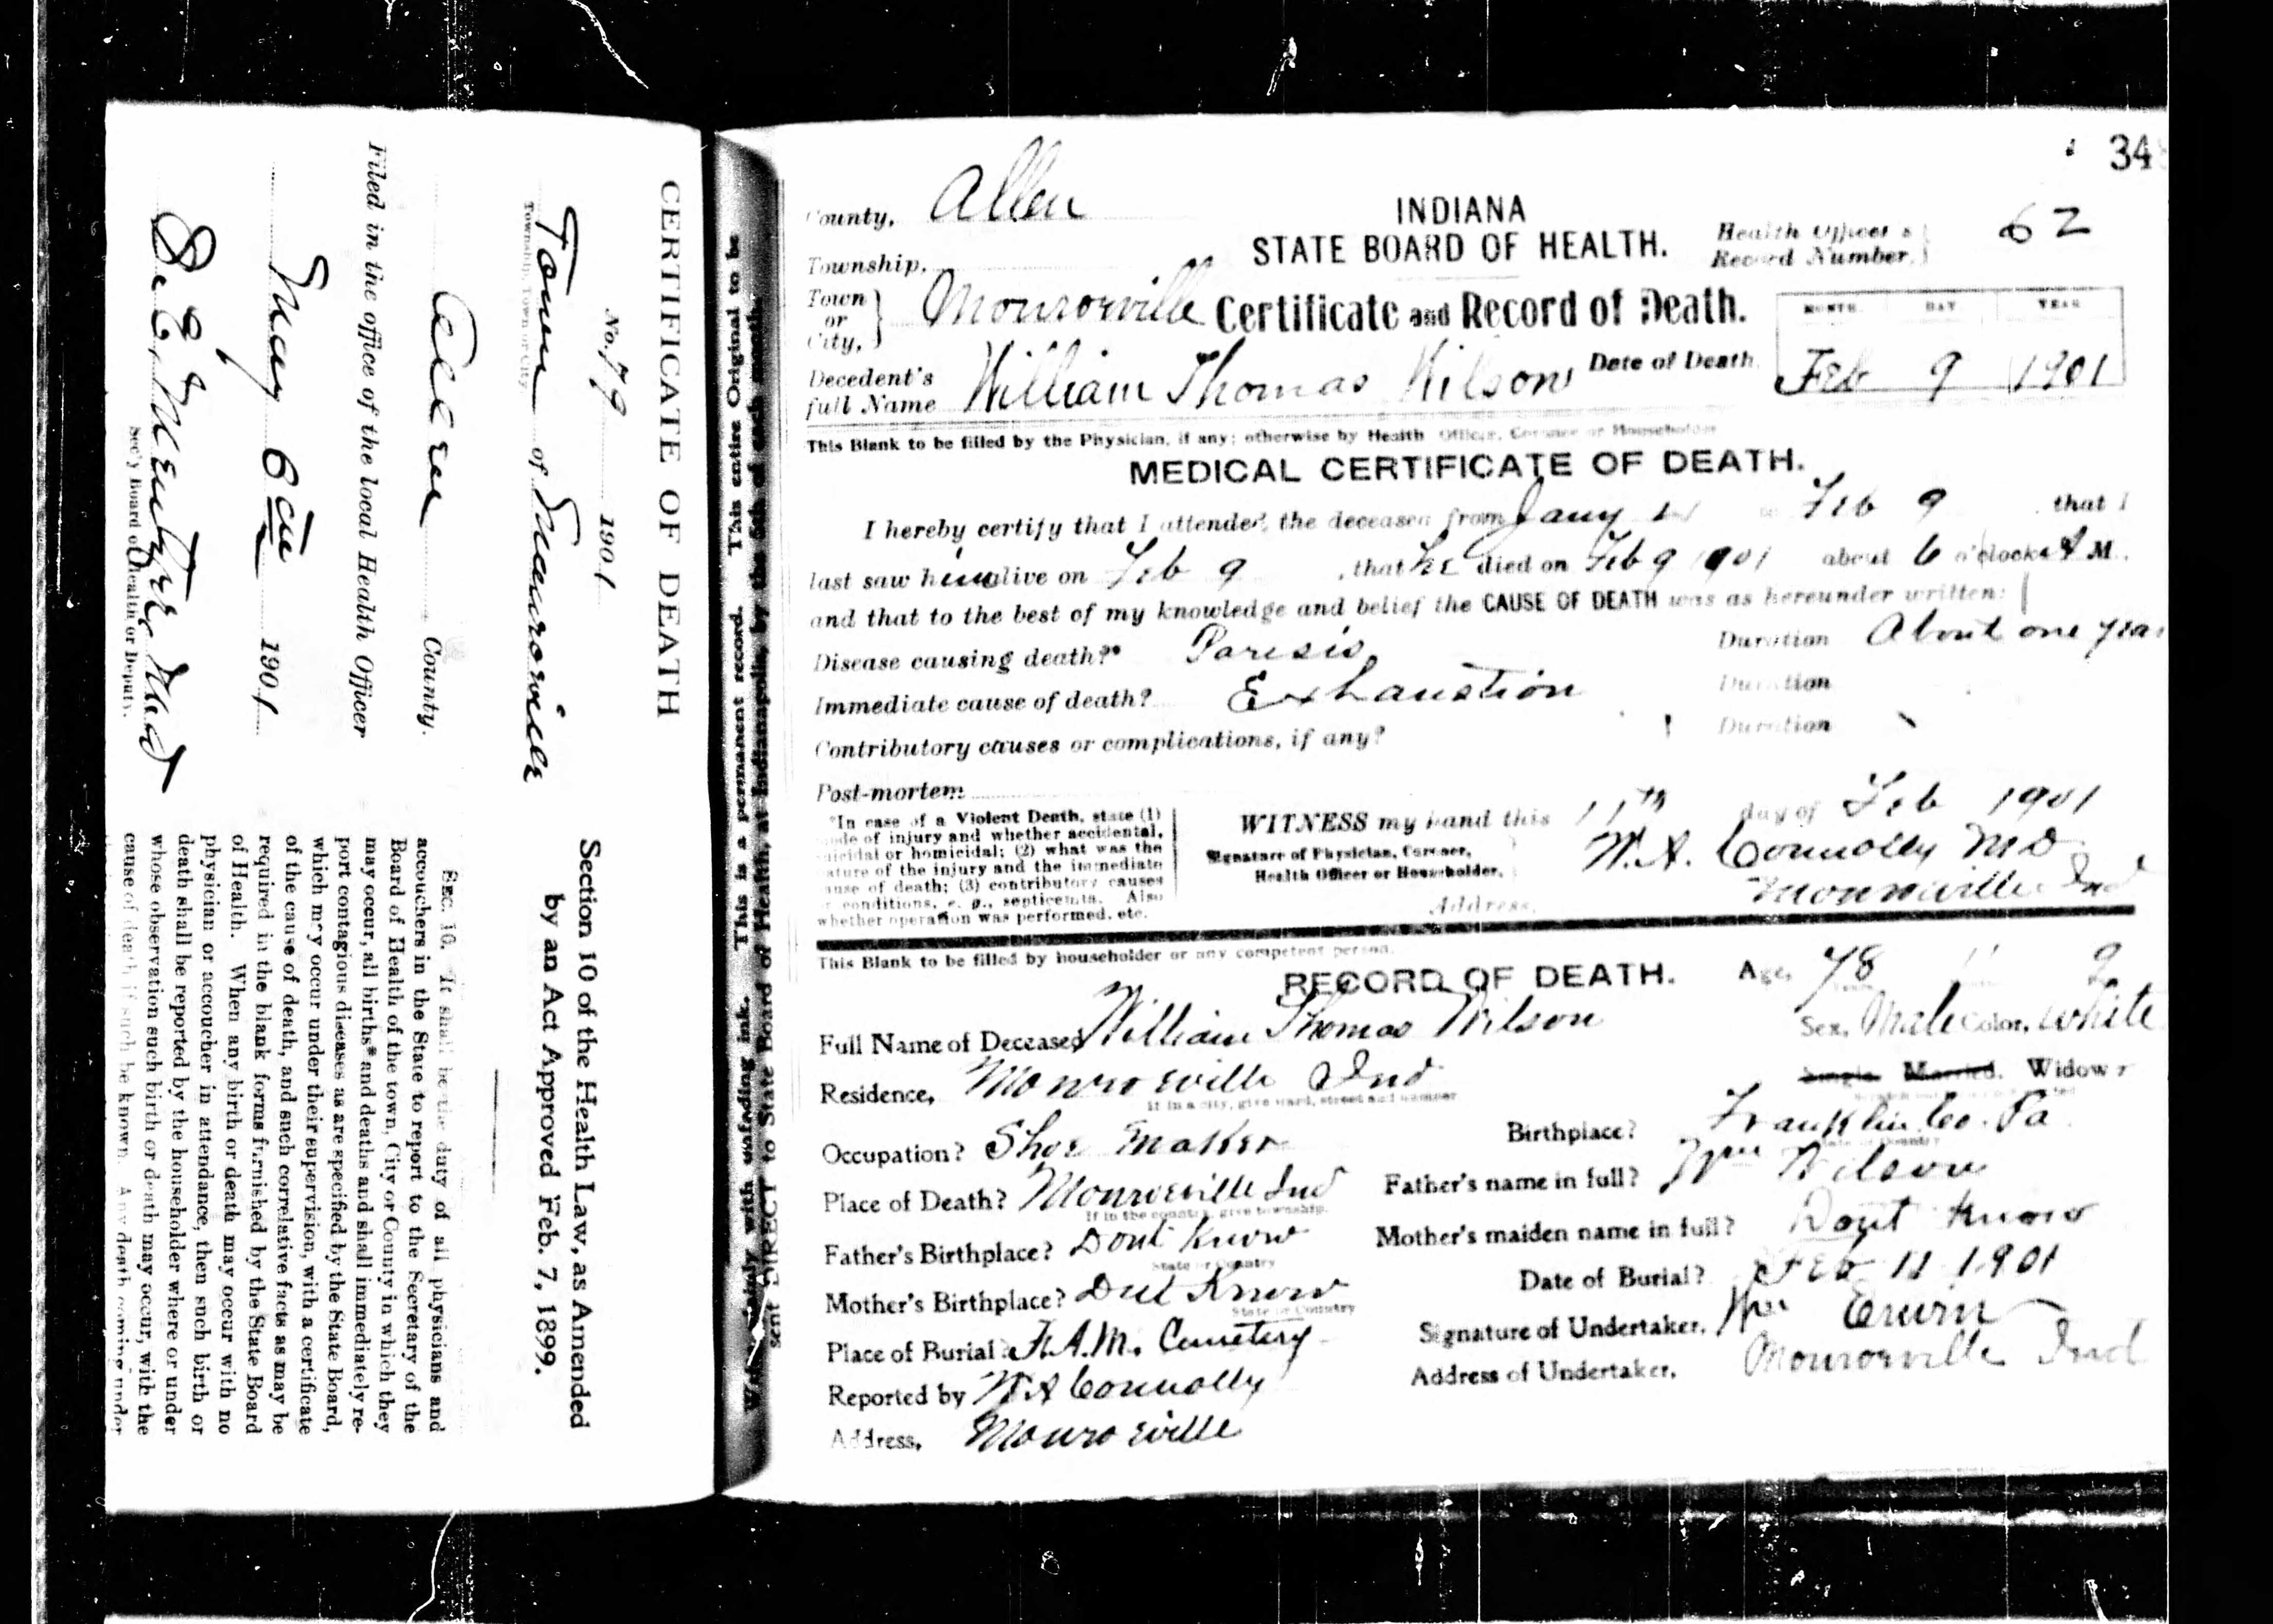 CERTIFICATE OF DEATH
No. 79 1901
Town of Monroeville
Township, Town or City
Allen County.
Filed in the office of the local Health Officer
May 6 1901
Sec'y Board of Health or Deputy.
Section 10 of the Health Law, as Amended
by an Act Approved Feb. 7, 1899.
SEC. 10. It shall be the duty of all physicians and
accouchers in the State to report to the Secretary of the
Board of Health of the town, City or County in which they
may occur, all births* and deaths and shall immediately re-
port contagious diseases as are specified by the State Board,
which may occur under their supervision, with a certificate
of the cause of death, and such correlative facts as may be
required in the blank forms furnished by the State Board
of Health. When any birth or death may occur with no
physician or accoucher in attendance, then such birth or
death shall be reported by the householder where or under
whose observation such birth or death may occur, with the
cause of death if such be known. Any death coming under
with unfading ink. This is a permanent record. This entire Original to be
sent DIRECT to State Board of Health, at Indianapolis, by the 5th of each month.
34
County, Allen
INDIANA
STATE BOARD OF HEALTH.
Health Officer's
Record Number. 62
Township,
Town
or
City, Monroeville
Certificate and Record of Death.
MONTH DAY YEAR
Decedent's
full Name William Thomas Wilson
Date of Death Feb 9 1901
This Blank to be filled by the Physician, if any; otherwise by Health Officer, Coroner or Householder
MEDICAL CERTIFICATE OF DEATH.
I hereby certify that I attended the deceased from Jany to Feb 9 that I
last saw him alive on Feb 9, that he died on Feb 9 1901 about 6 o'clock A M.
and that to the best of my knowledge and belief the CAUSE OF DEATH was as hereunder written:
Disease causing death?* Paresis Duration About one year
Immediate cause of death? Exhaustion Duration
Contributory causes or complications, if any? Duration
Post-mortem
*In case of a Violent Death, state (1)
mode of injury and whether accidental,
suicidal or homicidal; (2) what was the
nature of the injury and the immediate
cause of death; (3) contributory causes
or conditions, e. g., septicemia. Also
whether operation was performed, etc.
WITNESS my hand this 11th day of Feb 1901
Signature of Physician, Coroner,
Health Officer or Householder, W. A. Connolly MD
Address, Monroeville Ind
This Blank to be filled by householder or any competent person.
RECORD OF DEATH.
Age, 78 11 9
Full Name of Deceased William Thomas Wilson
Sex, Male Color, White
Residence, Monroeville Ind
If in a city, give ward, street and number
Single. Married. Widower
Occupation? Shoe Maker
Birthplace? Franklin Co. Pa
State or Country
Place of Death? Monroeville Ind
If in the country, give township.
Father's name in full? Wm Wilson
Father's Birthplace? Dont Know
State or Country
Mother's maiden name in full? Dont Know
Mother's Birthplace? Dont Know
State or Country
Date of Burial? Feb 11 1901
Place of Burial? F. A. M. Cemetery
Signature of Undertaker, Wm Erwin
Reported by W A Connolly
Address of Undertaker, Monroeville Ind
Address, Monroeville